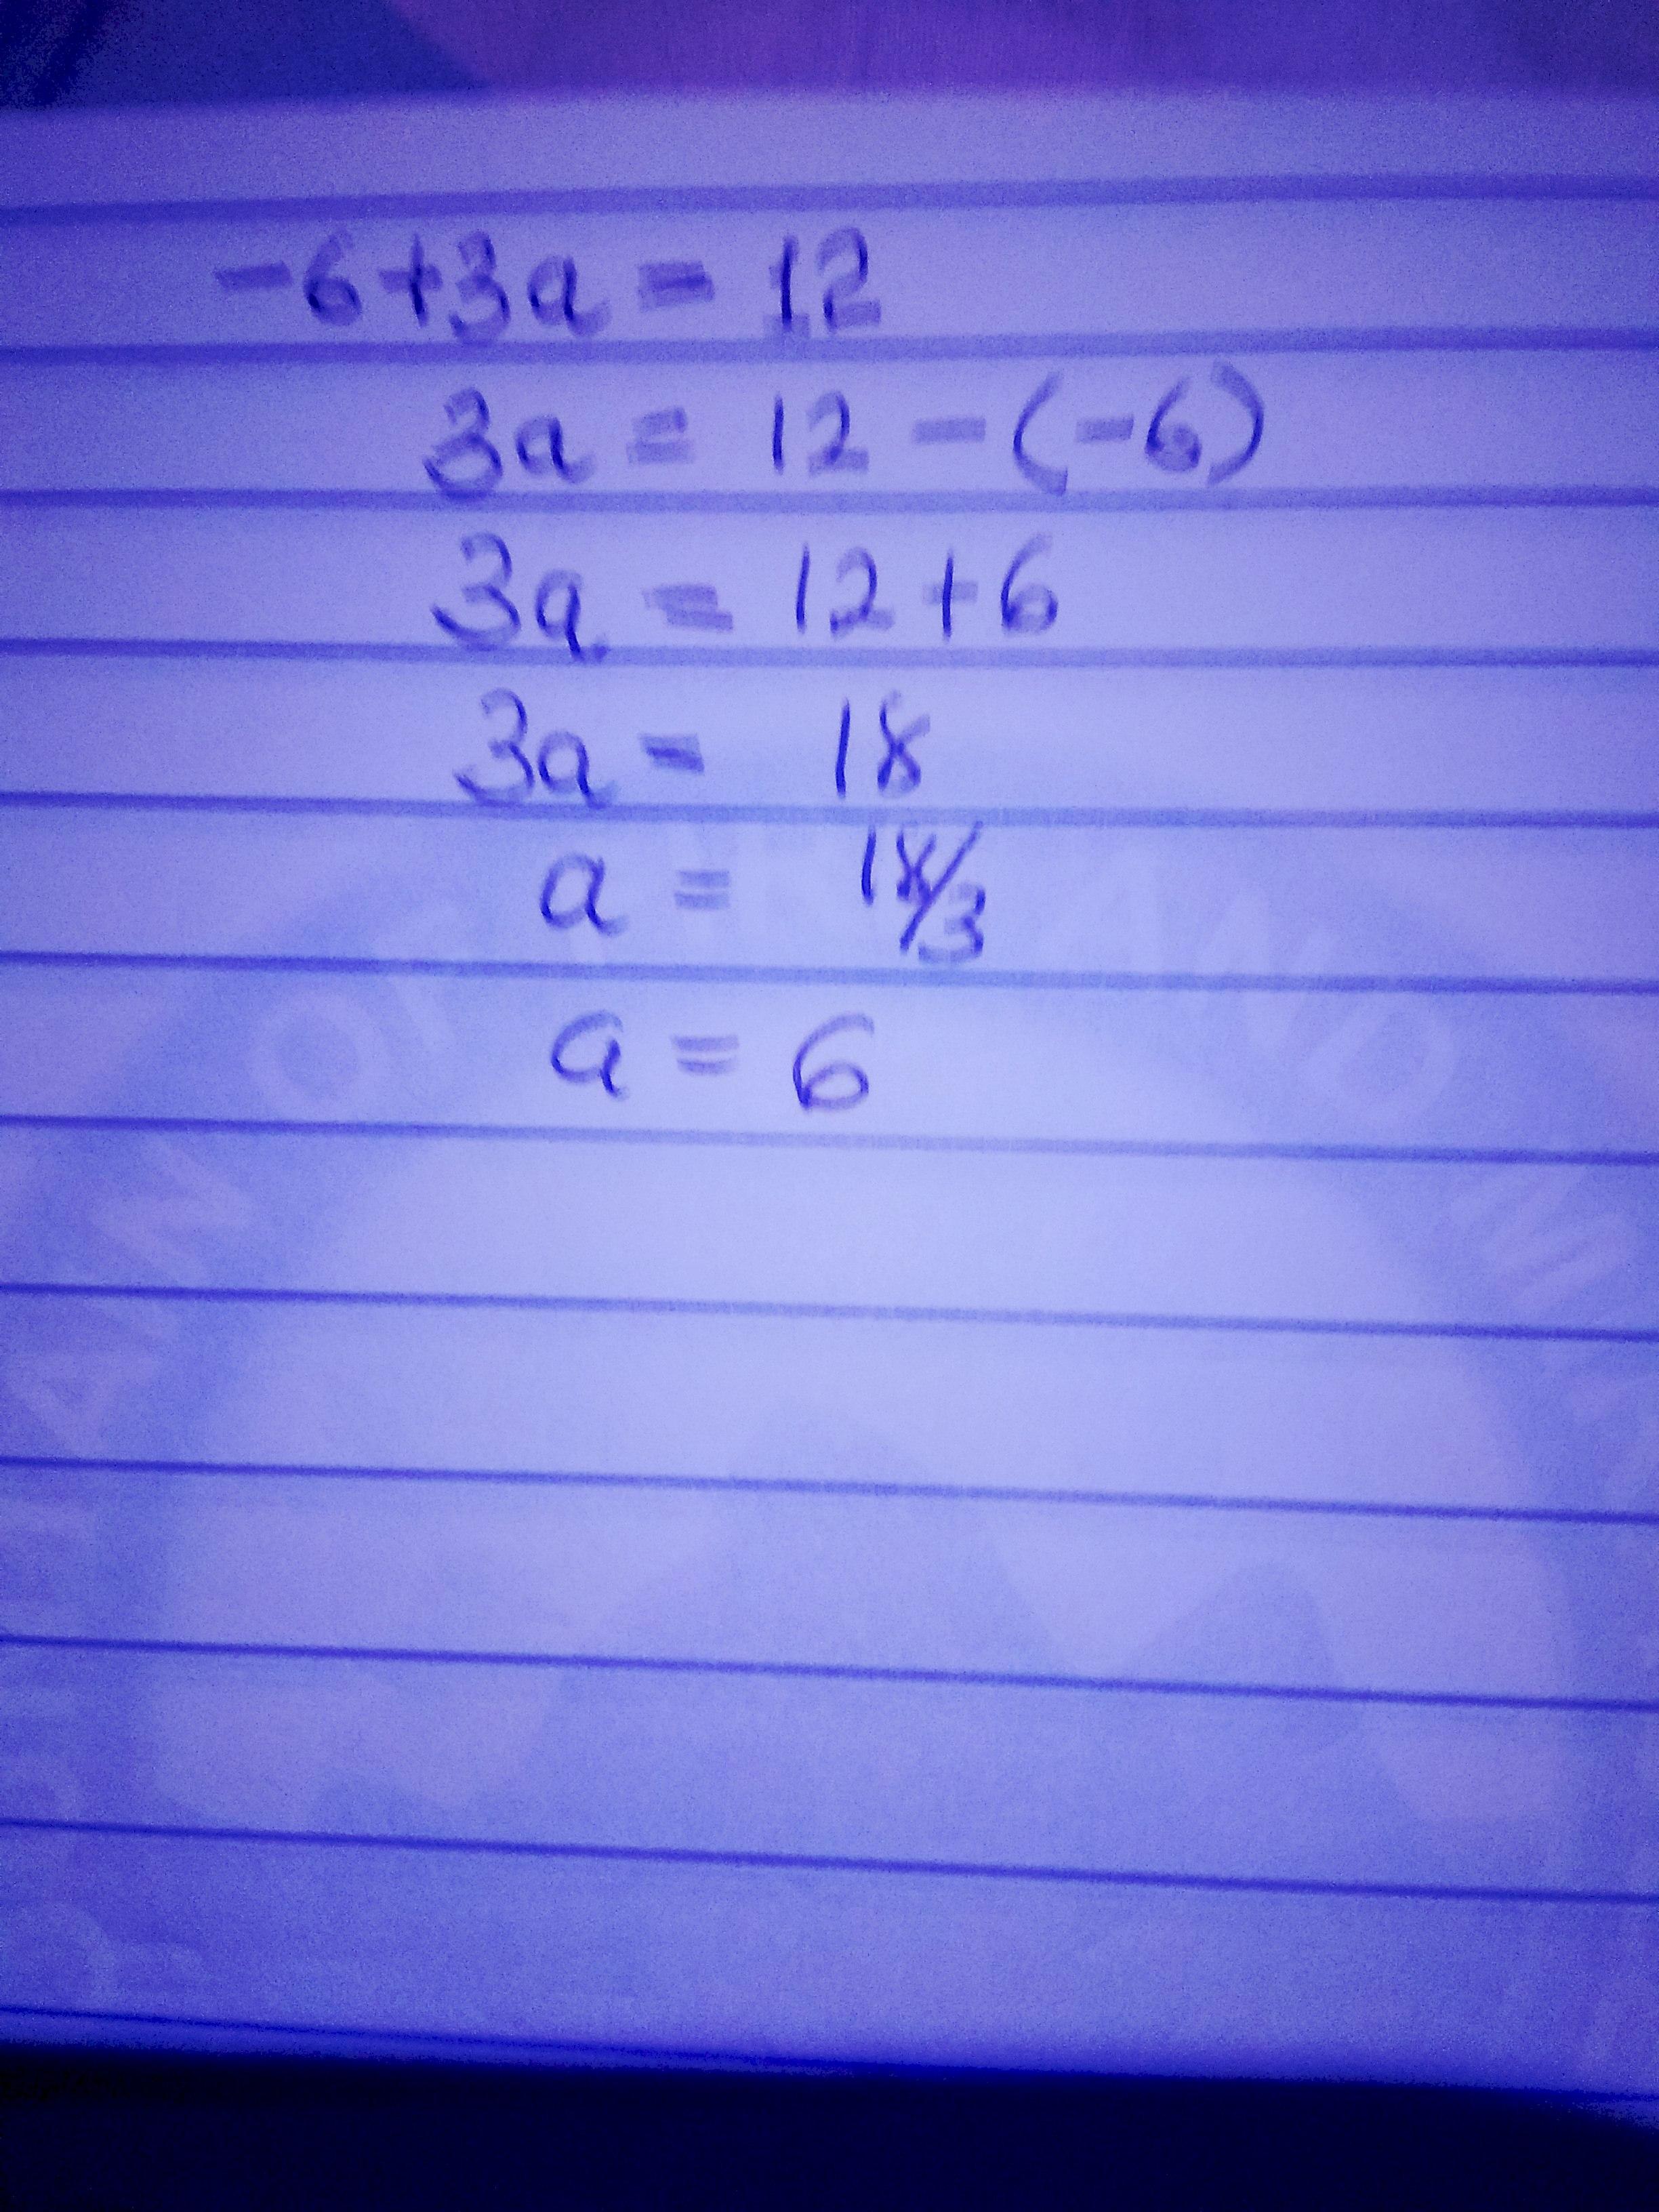 -6+3a = 12
3a = 12 - (-6)
3a = 12 + 6
3a = 18
a = 18/3
a = 6